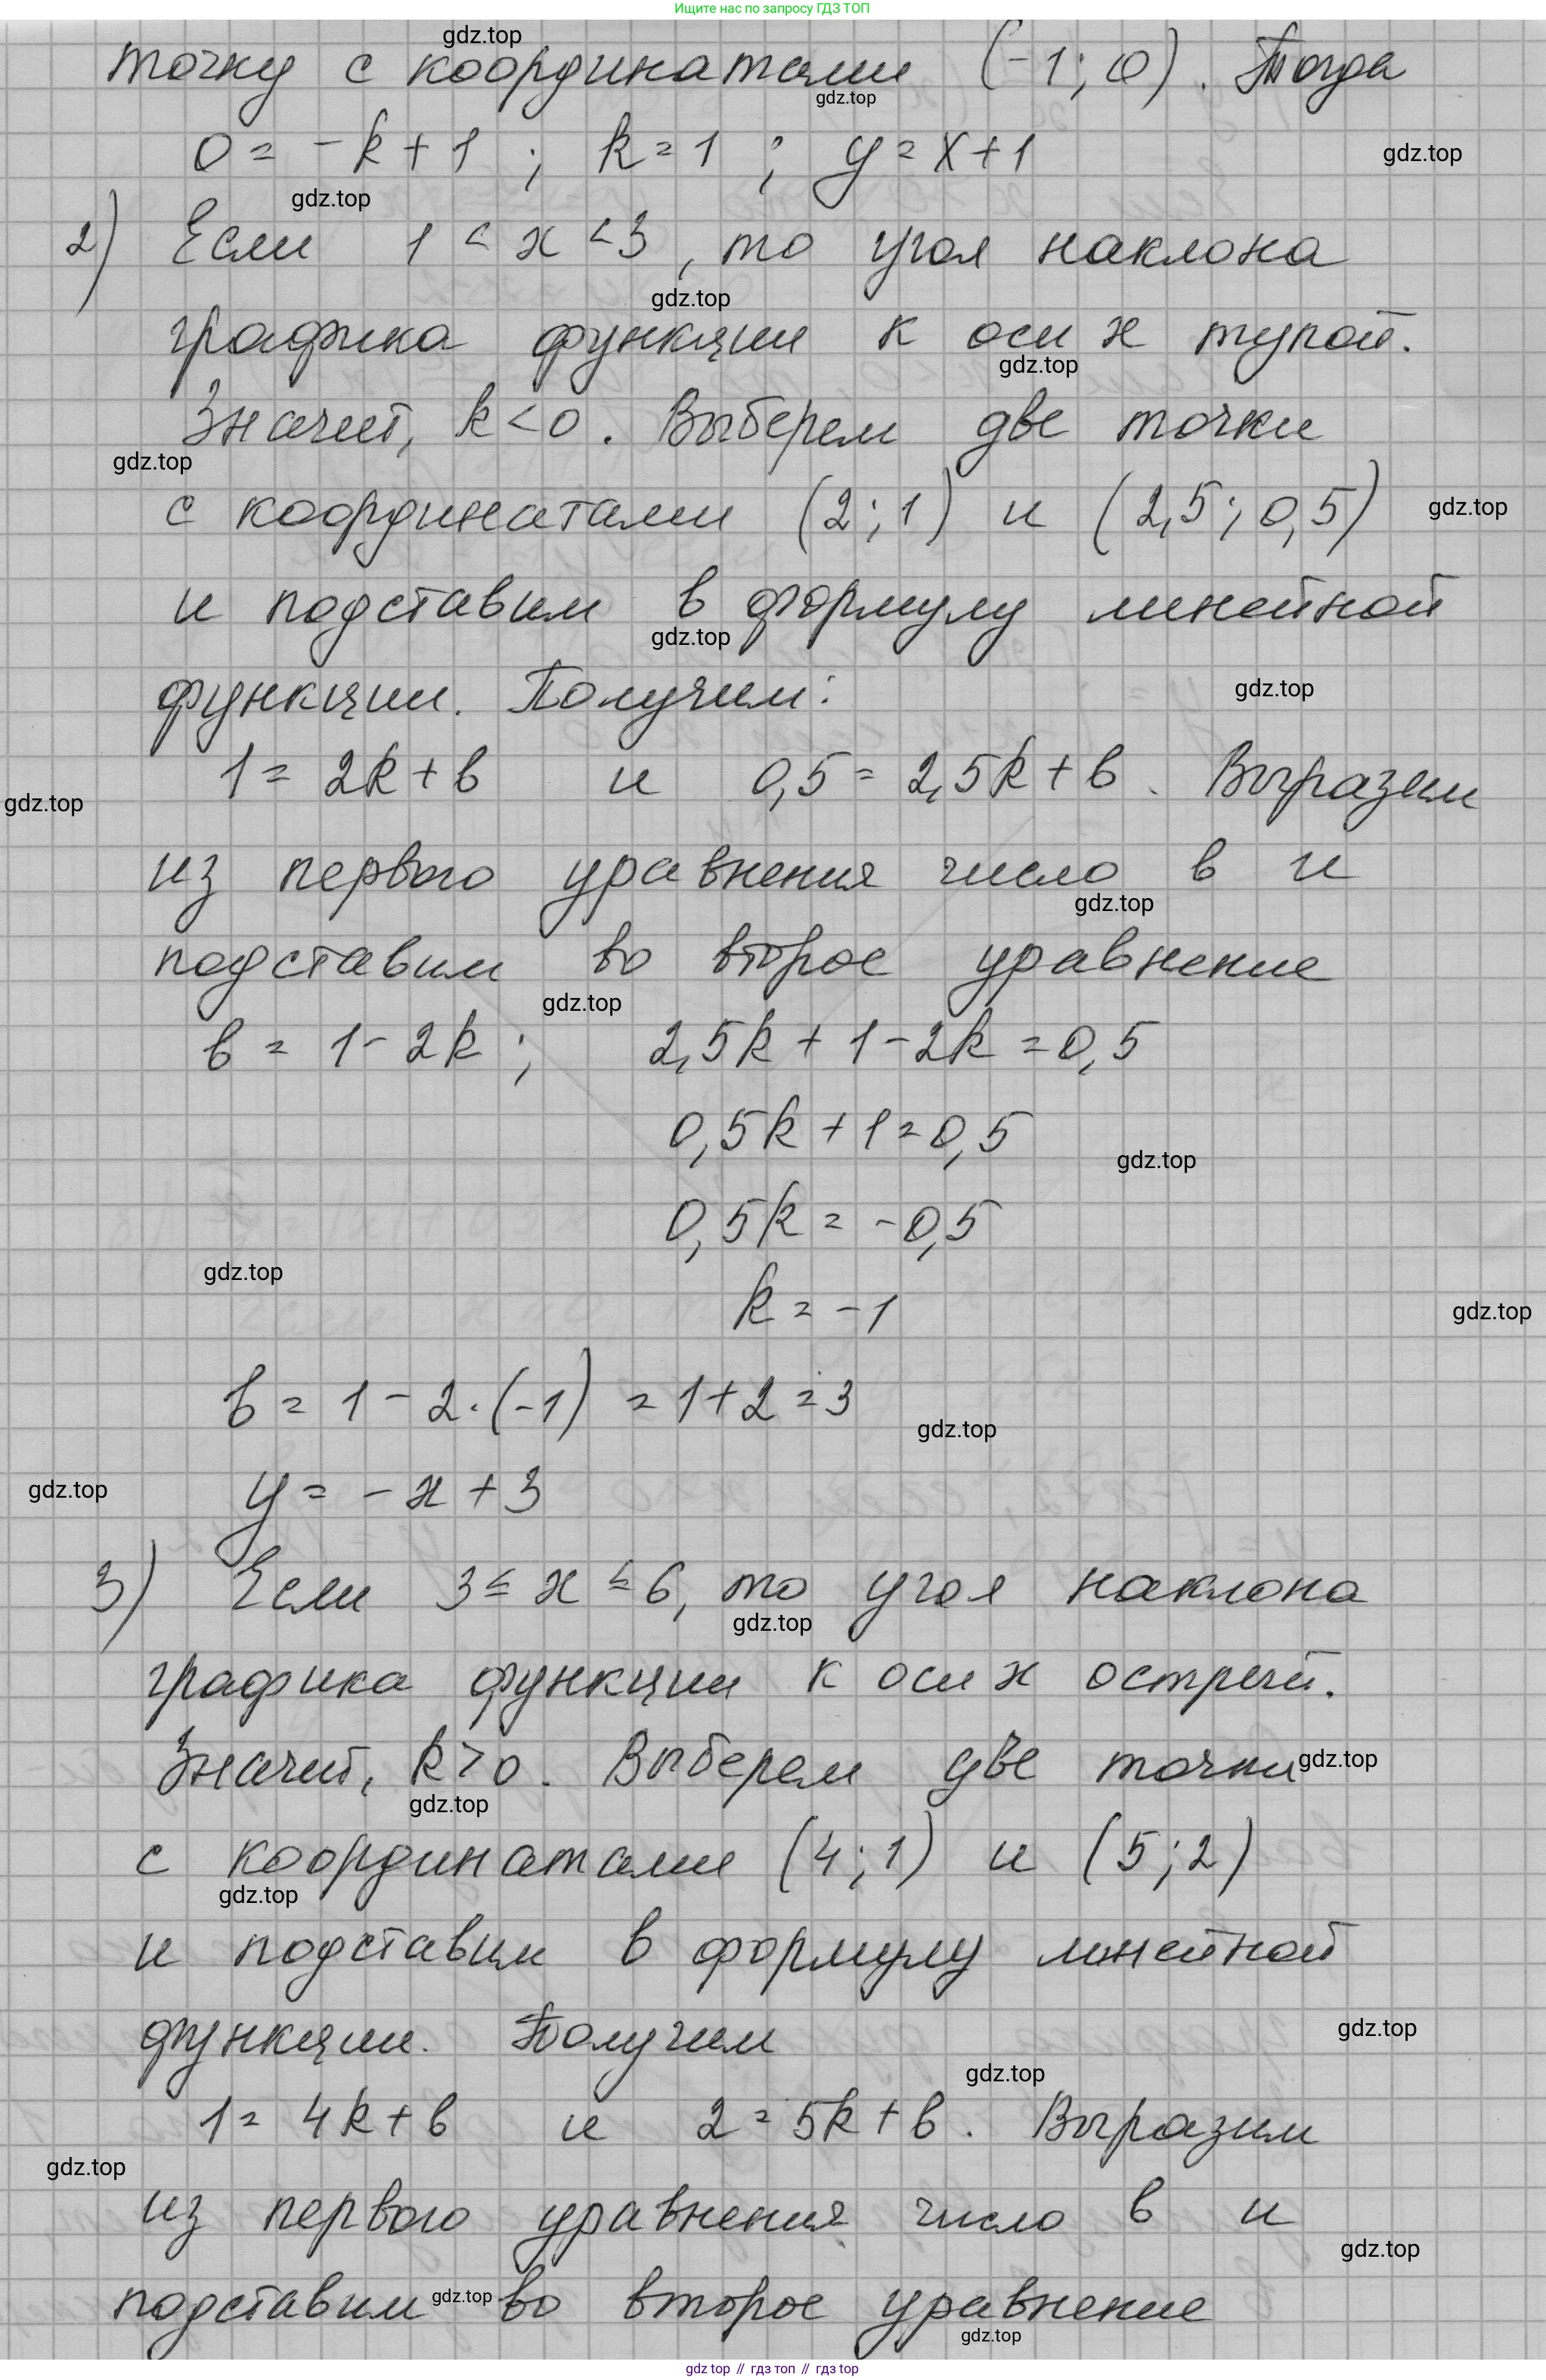 Ищите нас по запросу ГДЗ ТОП
gdz.top
точку с координатами (-1; 0). Тогда
gdz.top
0 = -k + 1 ; k = 1 ; y = x + 1
gdz.top
gdz.top
2) Если 1 < x < 3, то угол наклона
gdz.top
графика функции к оси x тупой.
gdz.top
Значит, k < 0. Выберем две точки
gdz.top
с координатами (2; 1) и (2,5; 0,5)
gdz.top
и подставим в формулу линейной
gdz.top
функции. Получим:
gdz.top
1 = 2k + в и 0,5 = 2,5k + в. Выразим
gdz.top
из первого уравнения число в и
gdz.top
подставим во второе уравнение
gdz.top
в = 1 - 2k ; 2,5k + 1 - 2k = 0,5
0,5k + 1 = 0,5
gdz.top
0,5k = -0,5
gdz.top
k = -1
gdz.top
в = 1 - 2·(-1) = 1 + 2 = 3
gdz.top
y = -x + 3
gdz.top
3) Если 3 ≤ x ≤ 6, то угол наклона
gdz.top
графика функции к оси x острый.
Значит, k > 0. Выберем две точки
gdz.top
gdz.top
с координатами (4; 1) и (5; 2)
gdz.top
и подставим в формулу линейной
функции. Получим
gdz.top
gdz.top
1 = 4k + в и 2 = 5k + в. Выразим
gdz.top
из первого уравнения число в и
gdz.top
подставим во второе уравнение
gdz.top
gdz.top
gdz top // гдз топ // гдз top